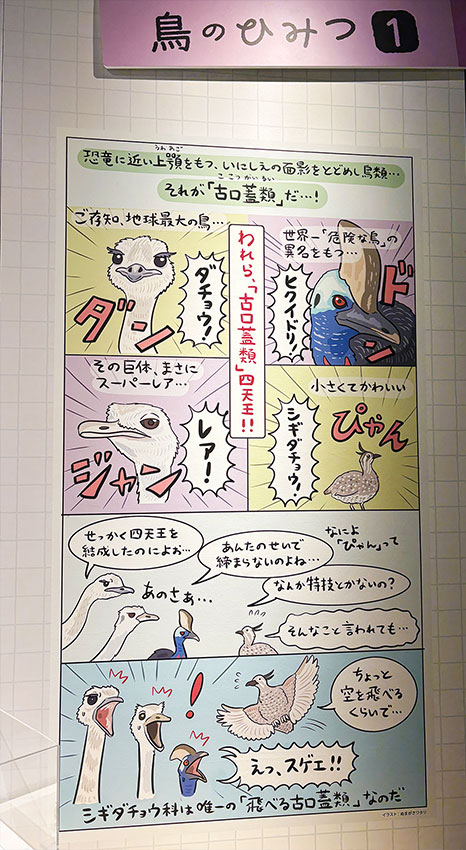 鳥のひみつ 1
恐竜に近い上顎をもつ、いにしえの面影をとどめし鳥類…
うわあご
それが「古口蓋類」だ…!
ここうがいるい
ご存知、地球最大の鳥…
ダチョウ!
ダン
世界一「危険な鳥」の
異名をもつ…
ヒクイドリ!
ドン
われら、「古口蓋類」四天王!!
その巨体、まさに
スーパーレア…
レアー!
ジャン
小さくてかわいい
シギダチョウ!
ぴゃん
せっかく四天王を
結成したのによぉ…
あのさぁ…
あんたのせいで
締まらないのよね…
なによ
「ぴゃん」って
なんか特技とかないの?
そんなこと言われても…
!
ちょっと
空を飛べる
くらいで…
えっ、スゲェ!!
シギダチョウ科は唯一の「飛べる古口蓋類」なのだ
イラスト:ぬまがさワタリ